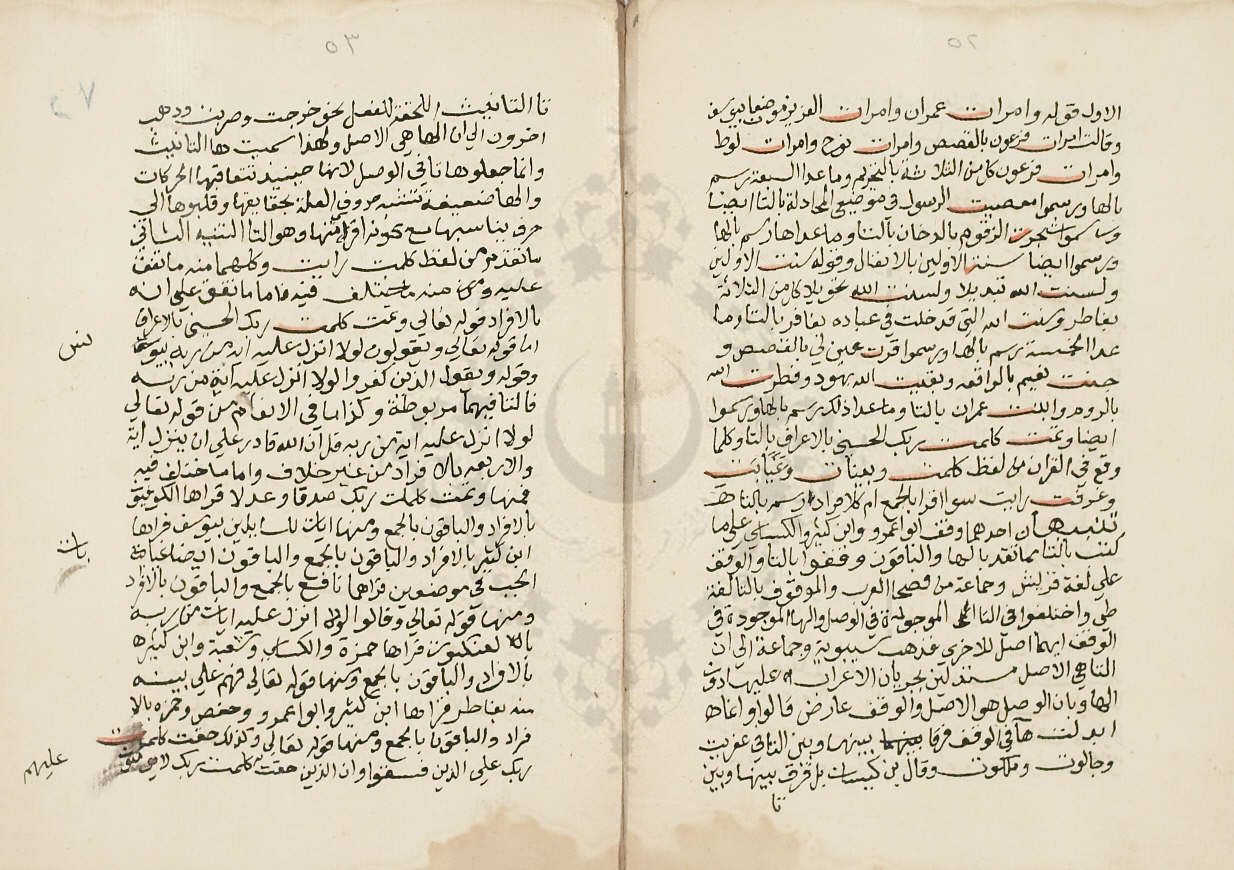 ٥٢
الاول قوله وامرات عمران وامرات العزيز موضعا بيوسف
وقالت امرات فرعون بالقصص وامرات نوح وامرات لوط
وامرات فرعون كل من الثلاثة بالتحريم وما عدا السبعة برسم
بالها ورسموا معصيت الرسول في موضعي المجادلة بالتا ايضا
ورسموا شجرت الزقوم بالدخان بالتا وما عداها رسم بالها
ورسموا ايضا سنت الاولين بالانفال وقوله سنت الاولين
ولسنت الله تبديلا ولسنت الله تحويلا كل من الثلاثة
بفاطر وسنت الله التي قد خلت في عباده بغافر بالتا وما
عدا الخمسة برسم بالها ورسموا قرت عين لي بالقصص و
جنت نعيم بالواقعه وبقيت الله بهود وفطرت الله
بالروم وابنت عمران بالتا وما عدا ذلك برسم بالها ورسموا
ايضا وتمت كلمت ربك الحسنى بالاعراف بالتا وكلما
وقع في القران من لفظ كلمت وبينات وغيابت
وغرفت رايت سوا اقرا بالجمع ام كلا فراد رسم بالتا
تنبيهان احدهما وقف ابو اعمرو وابن كثير والكساي على ما
كتب بالتا مما تقدم بالها والباقون وقفوا بالتا والوقف
على لغة قريش وجماعة من فصحى العرب والموقوف بالتا لغة
طي واختلفوا في التا الموجوده في الوصل والها الموجودة في
الوقف ايهما اصل للاخرى فذهب سيبويه وجماعة الى ان
التا هي الاصل مستدلين بجريان الاعراب عليها دون
الها وبان الوصل هو الاصل والوقف عارض قالوا وانما
ابدلت ها في الوقف فرقا بينها وبين التا في عفريت
وجالوت وملكوت وقال بن كيسان بل فرق بينها وبين
تا
٥٣
تا التانيث اللاحقة للفعل نحو خرجت وضربت وذهب
اخرون الى ان الها هي الاصل ولهذا سميت ها التانيث
وانما جعلوها تا في الوصل لانها حينيذ تتعاقبها الحركات
والها ضعيفة تشبه حروف العلة بخفايها وقلبوها الى
حرف يناسبها مع كونه اقوى منها وهو التا التنبيه الثاني
ما تقدم من لفظ كلمت رايت وكلهما منه ما تفق
عليه ومن منه ما ختلف فيه فاما ما تفق على انه
بالافراد قوله تعالى وتمت كلمت ربك الحسنى بالاعراف
اما قوله تعالى ويقولون لولا انزل عليه اية من ربه بيونس
وقوله ويقول الذين كفروا لولا انزل عليه اية من ربه
فالتا فيهما مربوطة وكذا ما في الانعام من قوله تعالى
لولا انزل عليه اية من ربه قل ان الله قادر على ان ينزل اية
والاربعه بالافراد من غير خلاف واما ما ختلف فيه
فمنها وتمت كلمات ربك صدقا وعدلا قراها الكوفيون
بالافراد والباقون بالجمع ومنها ايات للسايلين بيوسف قراها
ابن كثير بالافراد والباقون بالجمع والباقون ايضا غيابة
الجب في موضعين قراها نافع بالجمع والباقون بالافراد
ومنها قوله تعالى وقالوا لولا انزل عليه ايات من ربه
بالعنكبوت قراها حمزة والكساي وشعبة وابن كثير
بالافراد والباقون بالجمع ومنها قوله تعالى فهم على بينة
منه بفاطر قراها ابن كثير وابو اعمرو وحفص وحمزه بالا
فراد والباقون بالجمع ومنها قوله تعالى وكذلك حقت كلمت
ربك على الذين فسقوا وان الذين حقت كلمت ربك
عليهم